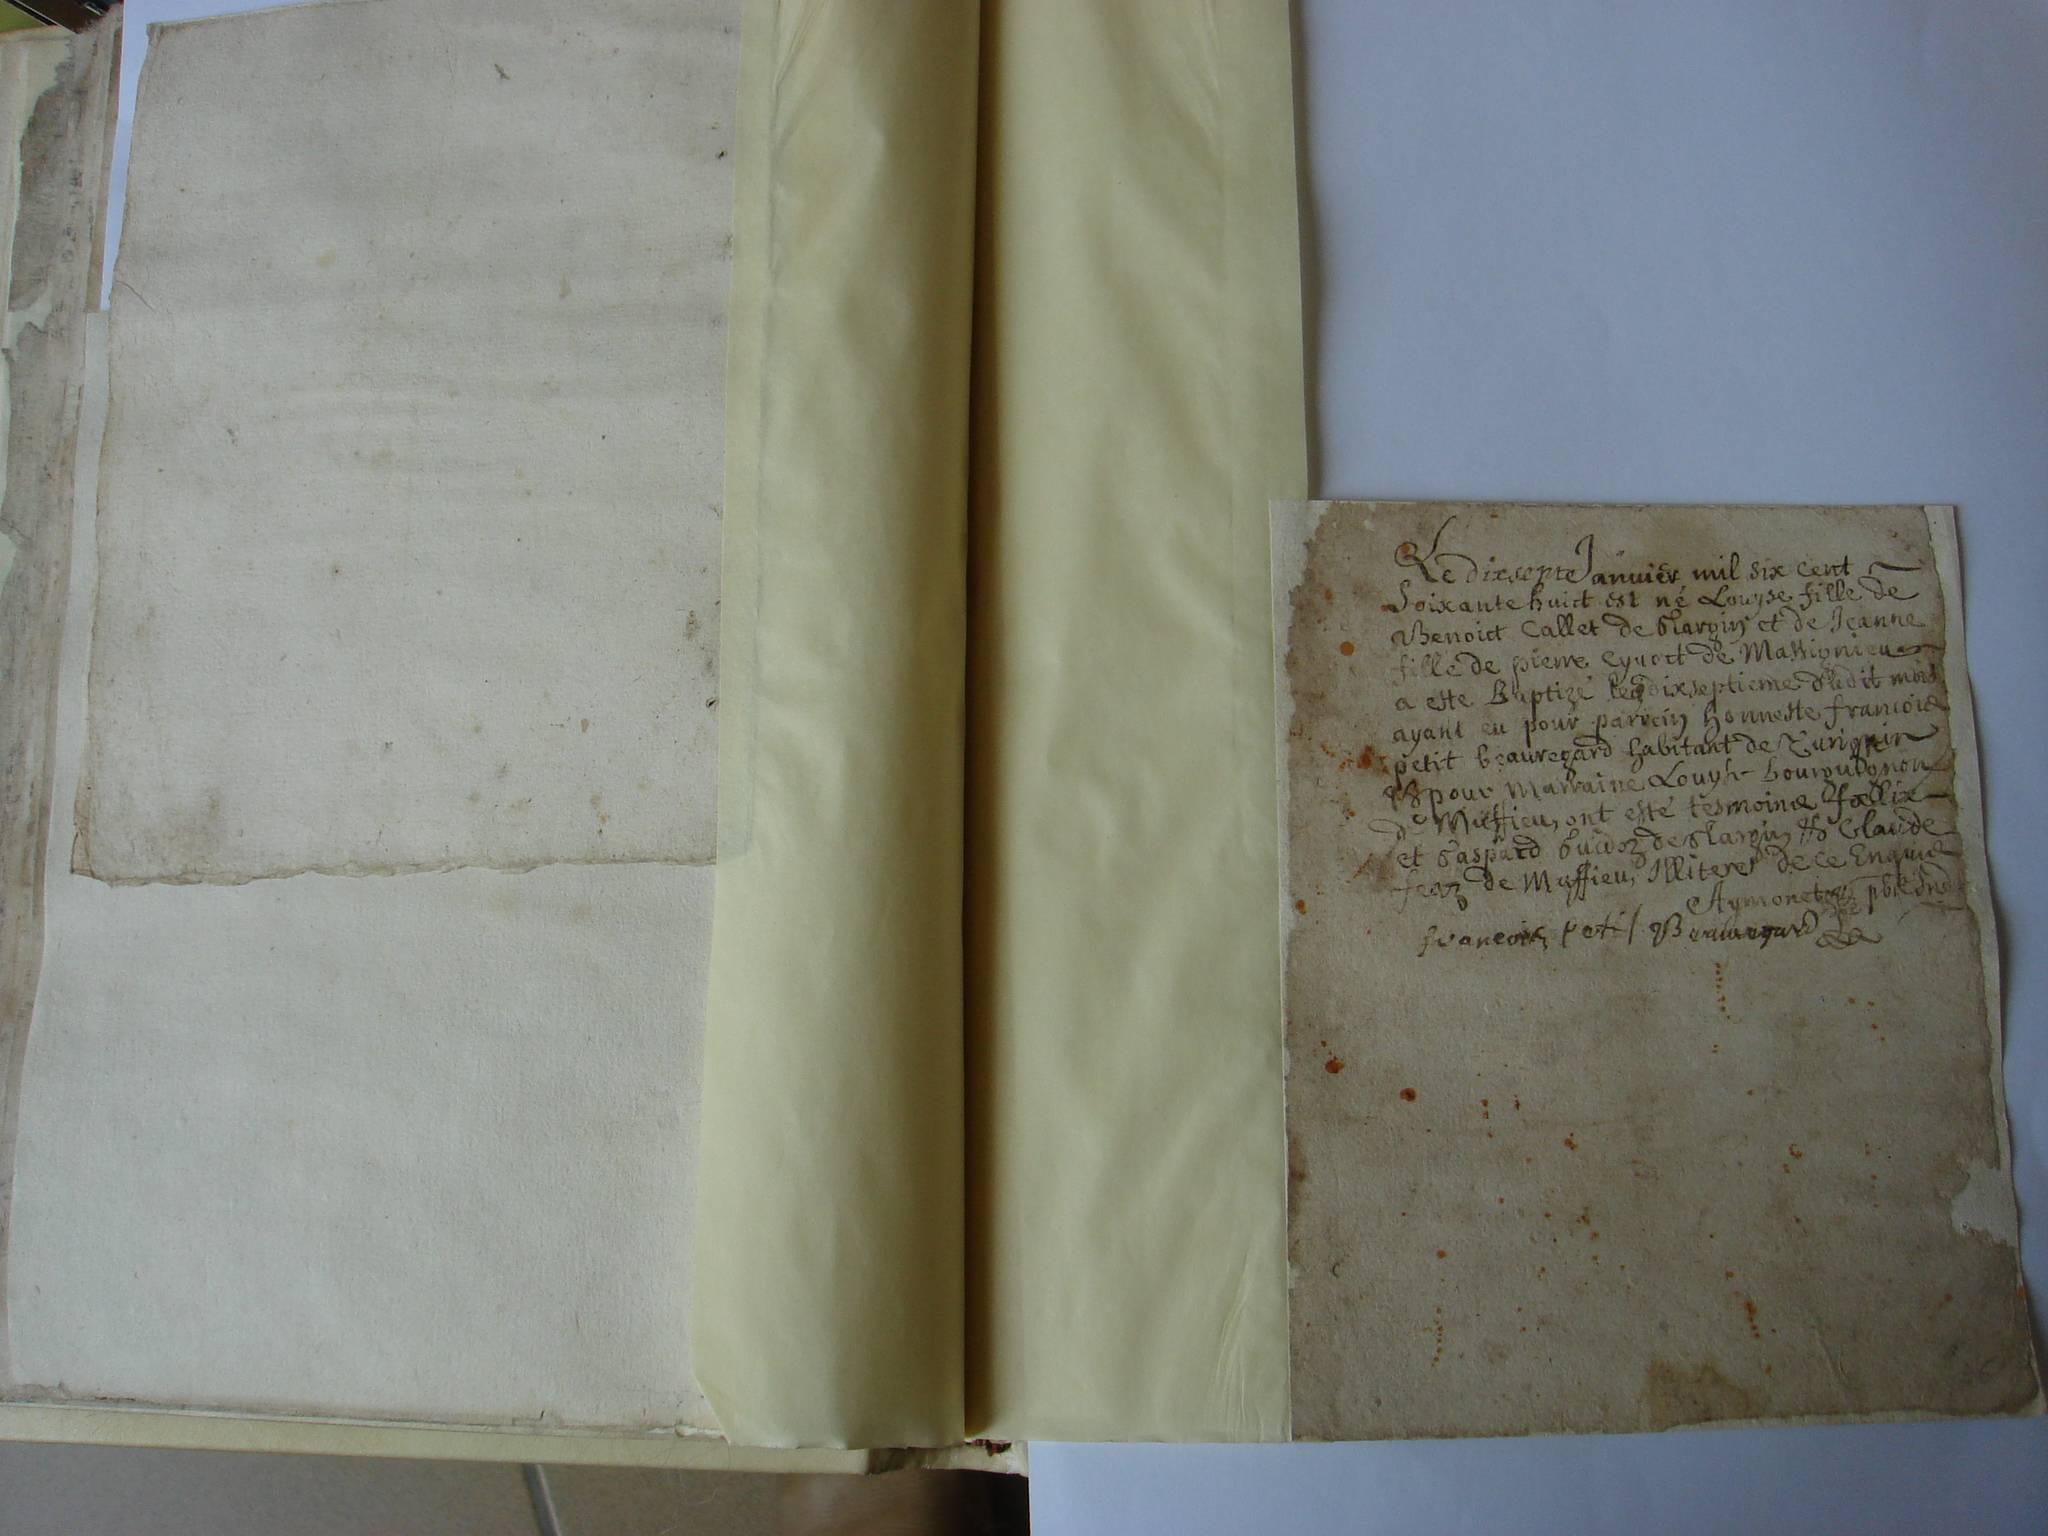 Le dixsepte Januier mil six cent
Soixante huict est né Louyse fille de
Benoict Callet de et de Jeanne
fille de pierre de Massignieu
a este Baptizé dixseptieme dudit mois
ayant eu pour parrein honneste francois
petit beauregard habitant de
& pour Marraine Louyse bourguignon
de Maffieu, ont esté tesmoins fœllix
et Gaspard de & Claude
de Maffieu, Illiteres de ce Enquis
Aymonet
francois petit Beauregard